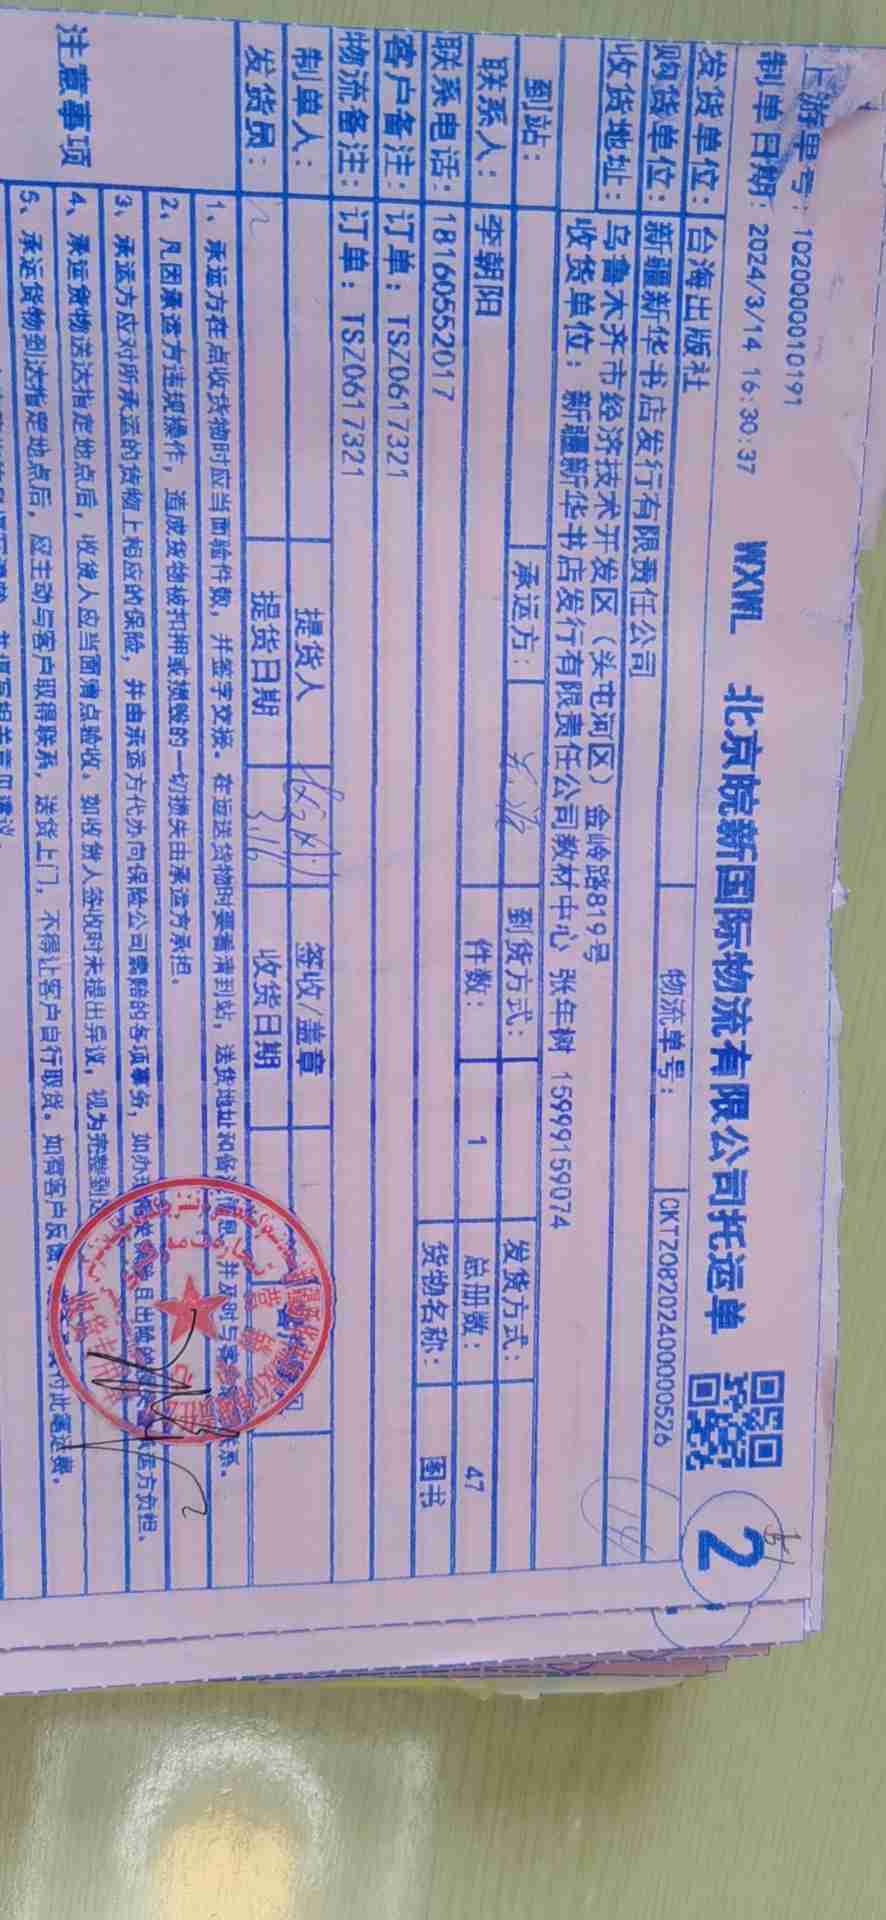 上游单号：1020000010191
制单日期：2024/3/14 16:30:37
WXWL 北京皖新国际物流有限公司托运单
2
发货单位：台海出版社
物流单号：CKTZ0820240000526
购货单位：新疆新华书店发行有限责任公司
收货地址：乌鲁木齐市经济技术开发区（头屯河区）金岭路819号
收货单位：新疆新华书店发行有限责任公司教材中心 张年树 15999159074
到站：
承运方：
到货方式：
发货方式：
联系人：李朝阳
件数：1
总册数：47
联系电话：18160552017
货物名称：图书
客户备注：订单：TSZ0617321
物流备注：订单：TSZ0617321
制单人：
提货人
签收/盖章
发货员：
提货日期 3.16
收货日期
注意事项
1、承运方在点收货物时应当面验件数，并签字交接。在运送货物时要看清到站，送货地址和备
2、凡因承运方违规操作，造成货物被扣押或损毁的一切损失由承运方承担。
3、承运方应对所承运的货物上相应的保险，并由承运方代办向保险公司索赔的各项事务，如办理
运方负担。
4、承运货物送达指定地点后，收货人应当面清点验收。如收货人签收时未提出异议，视为完整到达
5、承运货物到达指定地点后，应主动与客户取得联系，送货上门，不得让客户自行取货。如有客户反馈
付此笔运费。